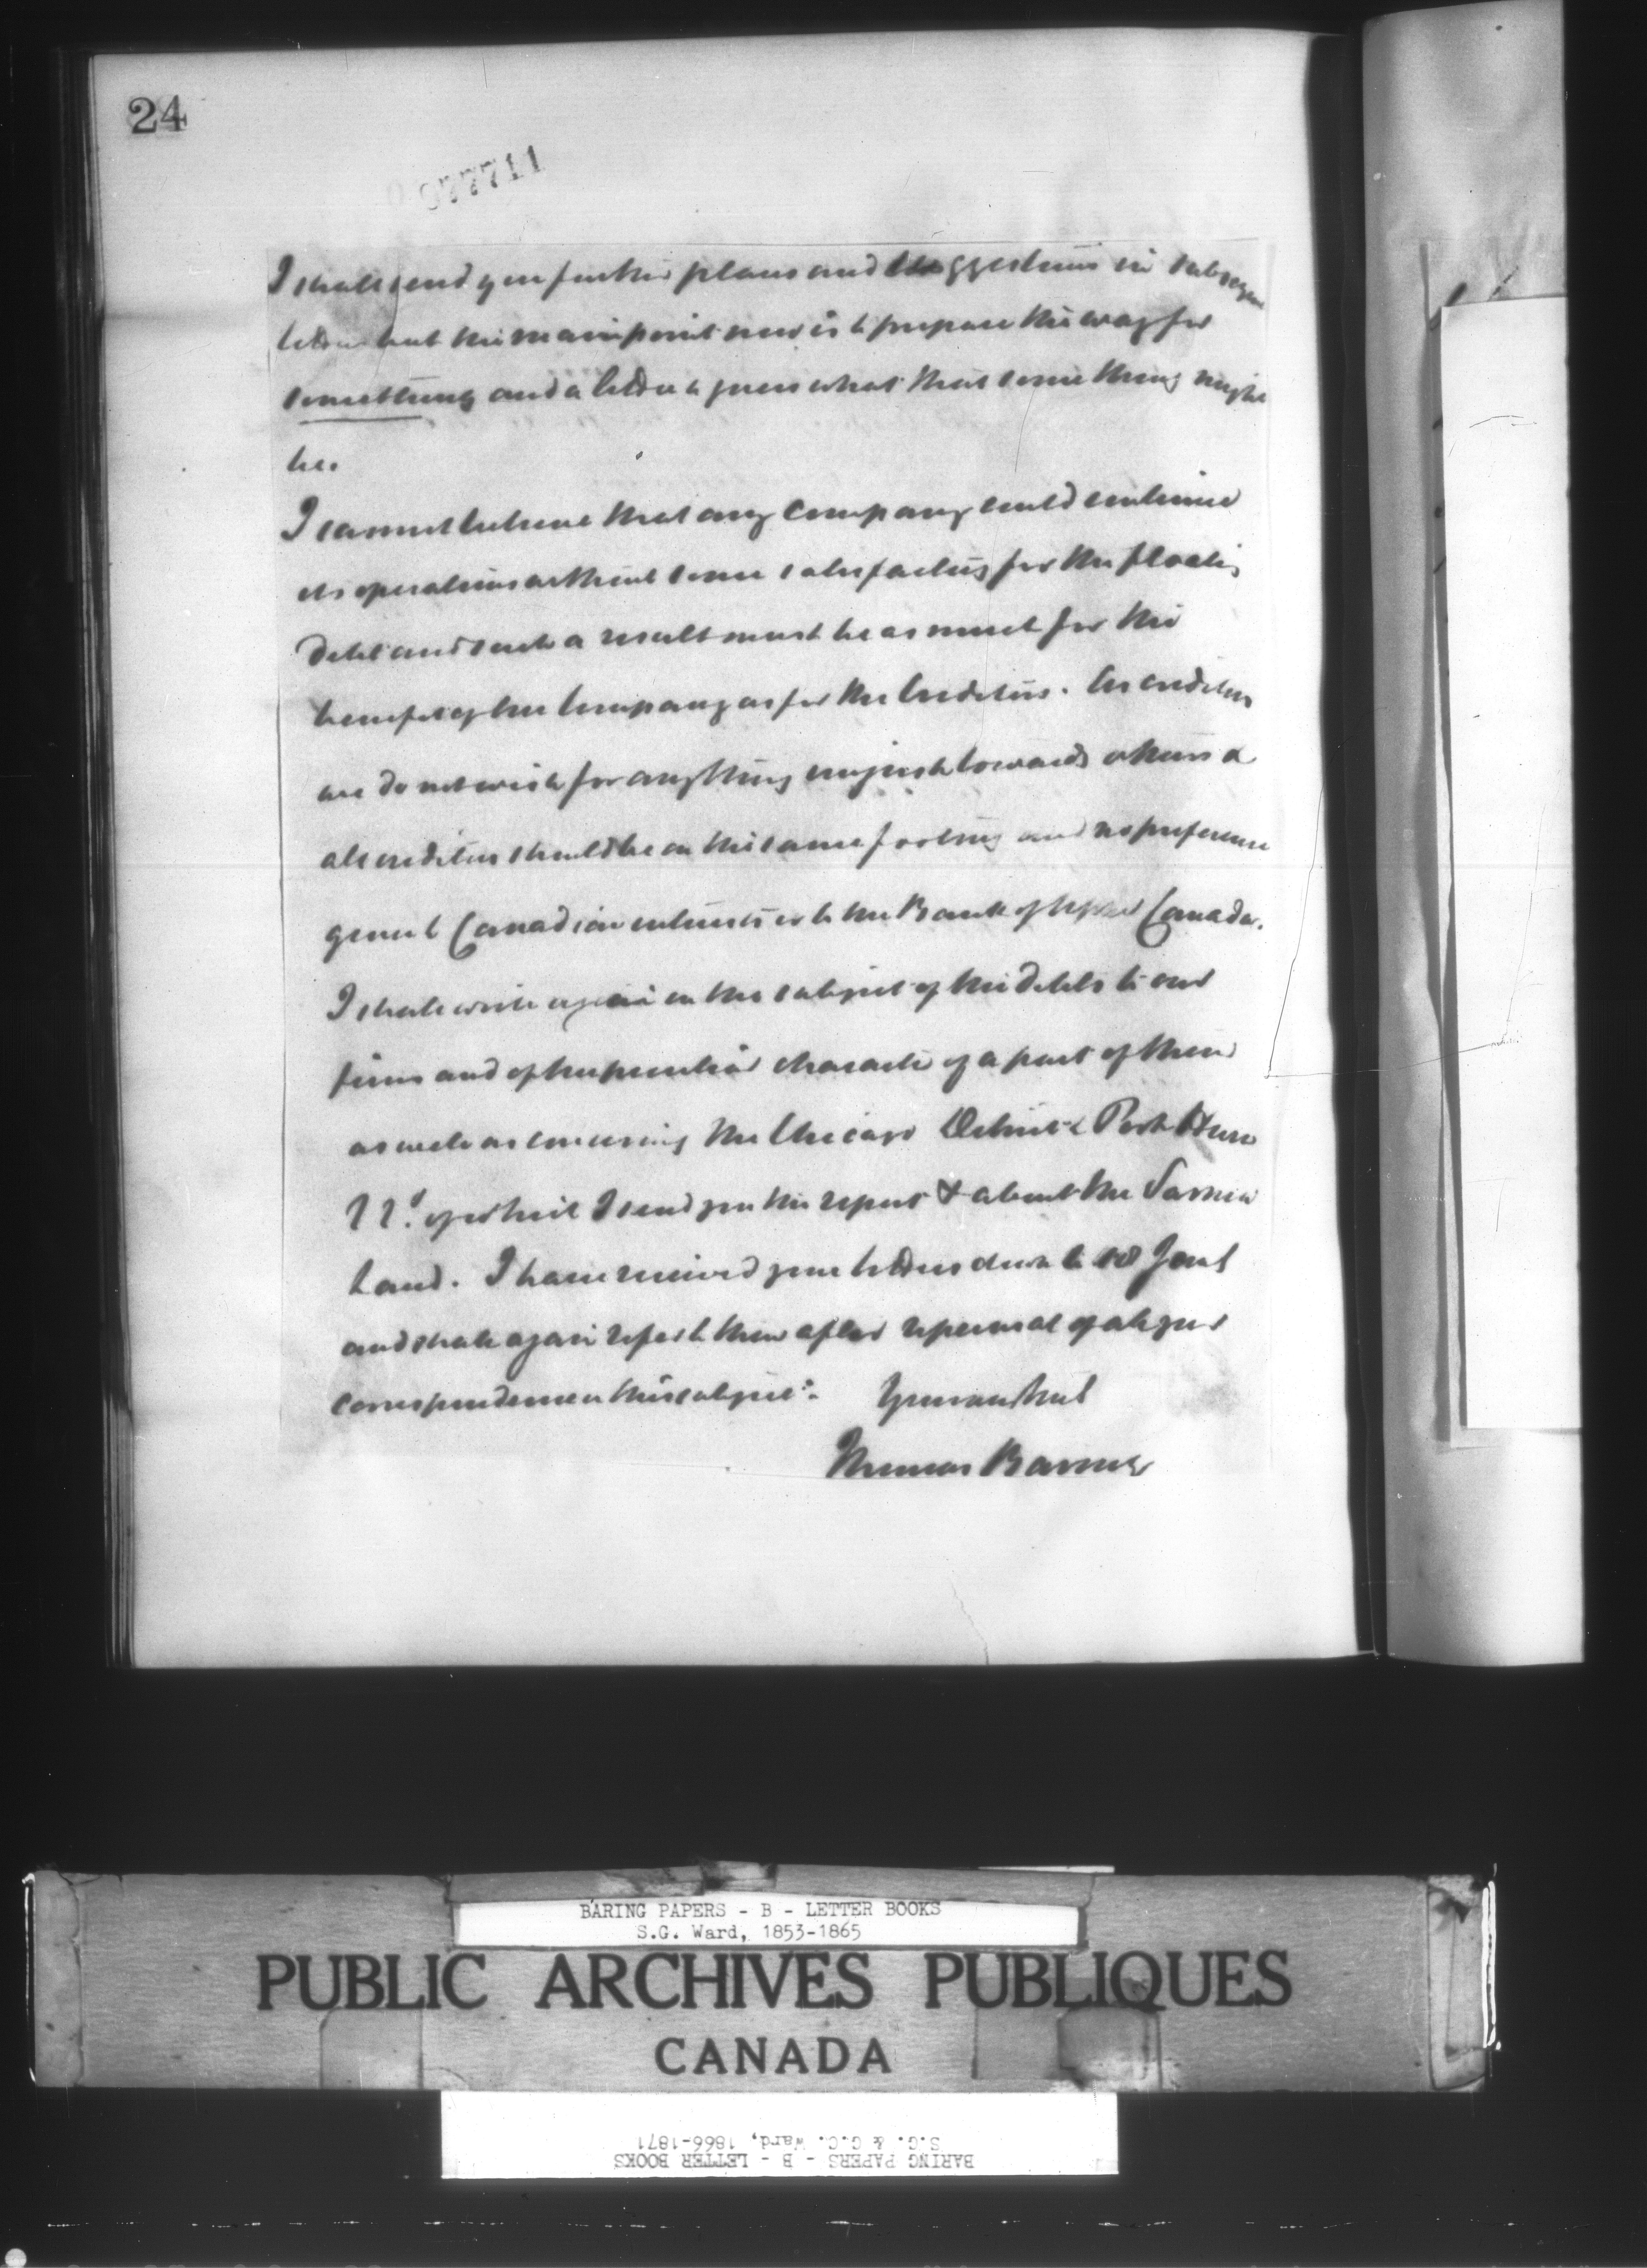 24
077711
I shall send you further plans and suggestions in subsequent
letters but the main point now is to prepare the way for
something and a letter to guess what that something might
be.
I cannot believe that any Company could continue
its operations without some satisfactory for the floating
debt and such a result must be as much for the
benefit of the Company as for the Creditors. As creditors
we do not wish for anything unjust towards others &
all creditors should be on the same footing and no preference
given to Canadian interests or to the Bank of Upper Canada.
I shall write again on the subject of the debts to our
firms and of the peculiar character of a part of them
as well as concerning the Chicago Detroit & Port Huron
of which I send you the report & about the Sarnia
Land. I have received your letters down to 10 Jany
and shall again refer to them after reperusal of all your
correspondence on this subject. Yours am truly
Thomas Baring
BARING PAPERS - B - LETTER BOOKS
S.G. Ward, 1853-1865
PUBLIC ARCHIVES PUBLIQUES
CANADA
BARING PAPERS - B - LETTER BOOKS
S.G. & G.C. Ward, 1866-1871